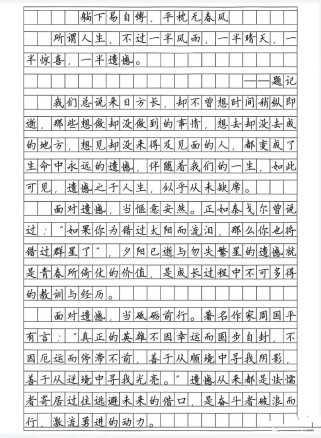 躺下易自缚，平枕无春风
所谓人生，不过一半风雨，一半晴天，一
半惊喜，一半遗憾。
——题记
我们总说来日方长，却不曾想时间稍纵即
逝，那些想做却没做到的事情，想去却没去成
的地方，想见却没来得及见面的人，都变成了
生命中永远的遗憾，伴随着我们的一生，如此
可见，遗憾之于人生，似乎从未缺席。
面对遗憾，当惬意安然。正如泰戈尔曾说
过：“如果你为错过太阳而流泪，那么你也将
错过群星了”，夕阳已逝与勿失繁星的遗憾就
是青春所倚仗的价值，是成长过程中不可多得
的教训与经历。
面对遗憾，当砥砺前行。著名作家周国平
有言：“真正的英雄不因幸运而固步自封，不
因厄运而停滞不前，善于从顺境中寻找阴影，
善于从逆境中寻找光亮。”遗憾从来都是怯懦
者寄居过往逃避未来的借口，是奋斗者破浪而
行，激流勇进的动力。